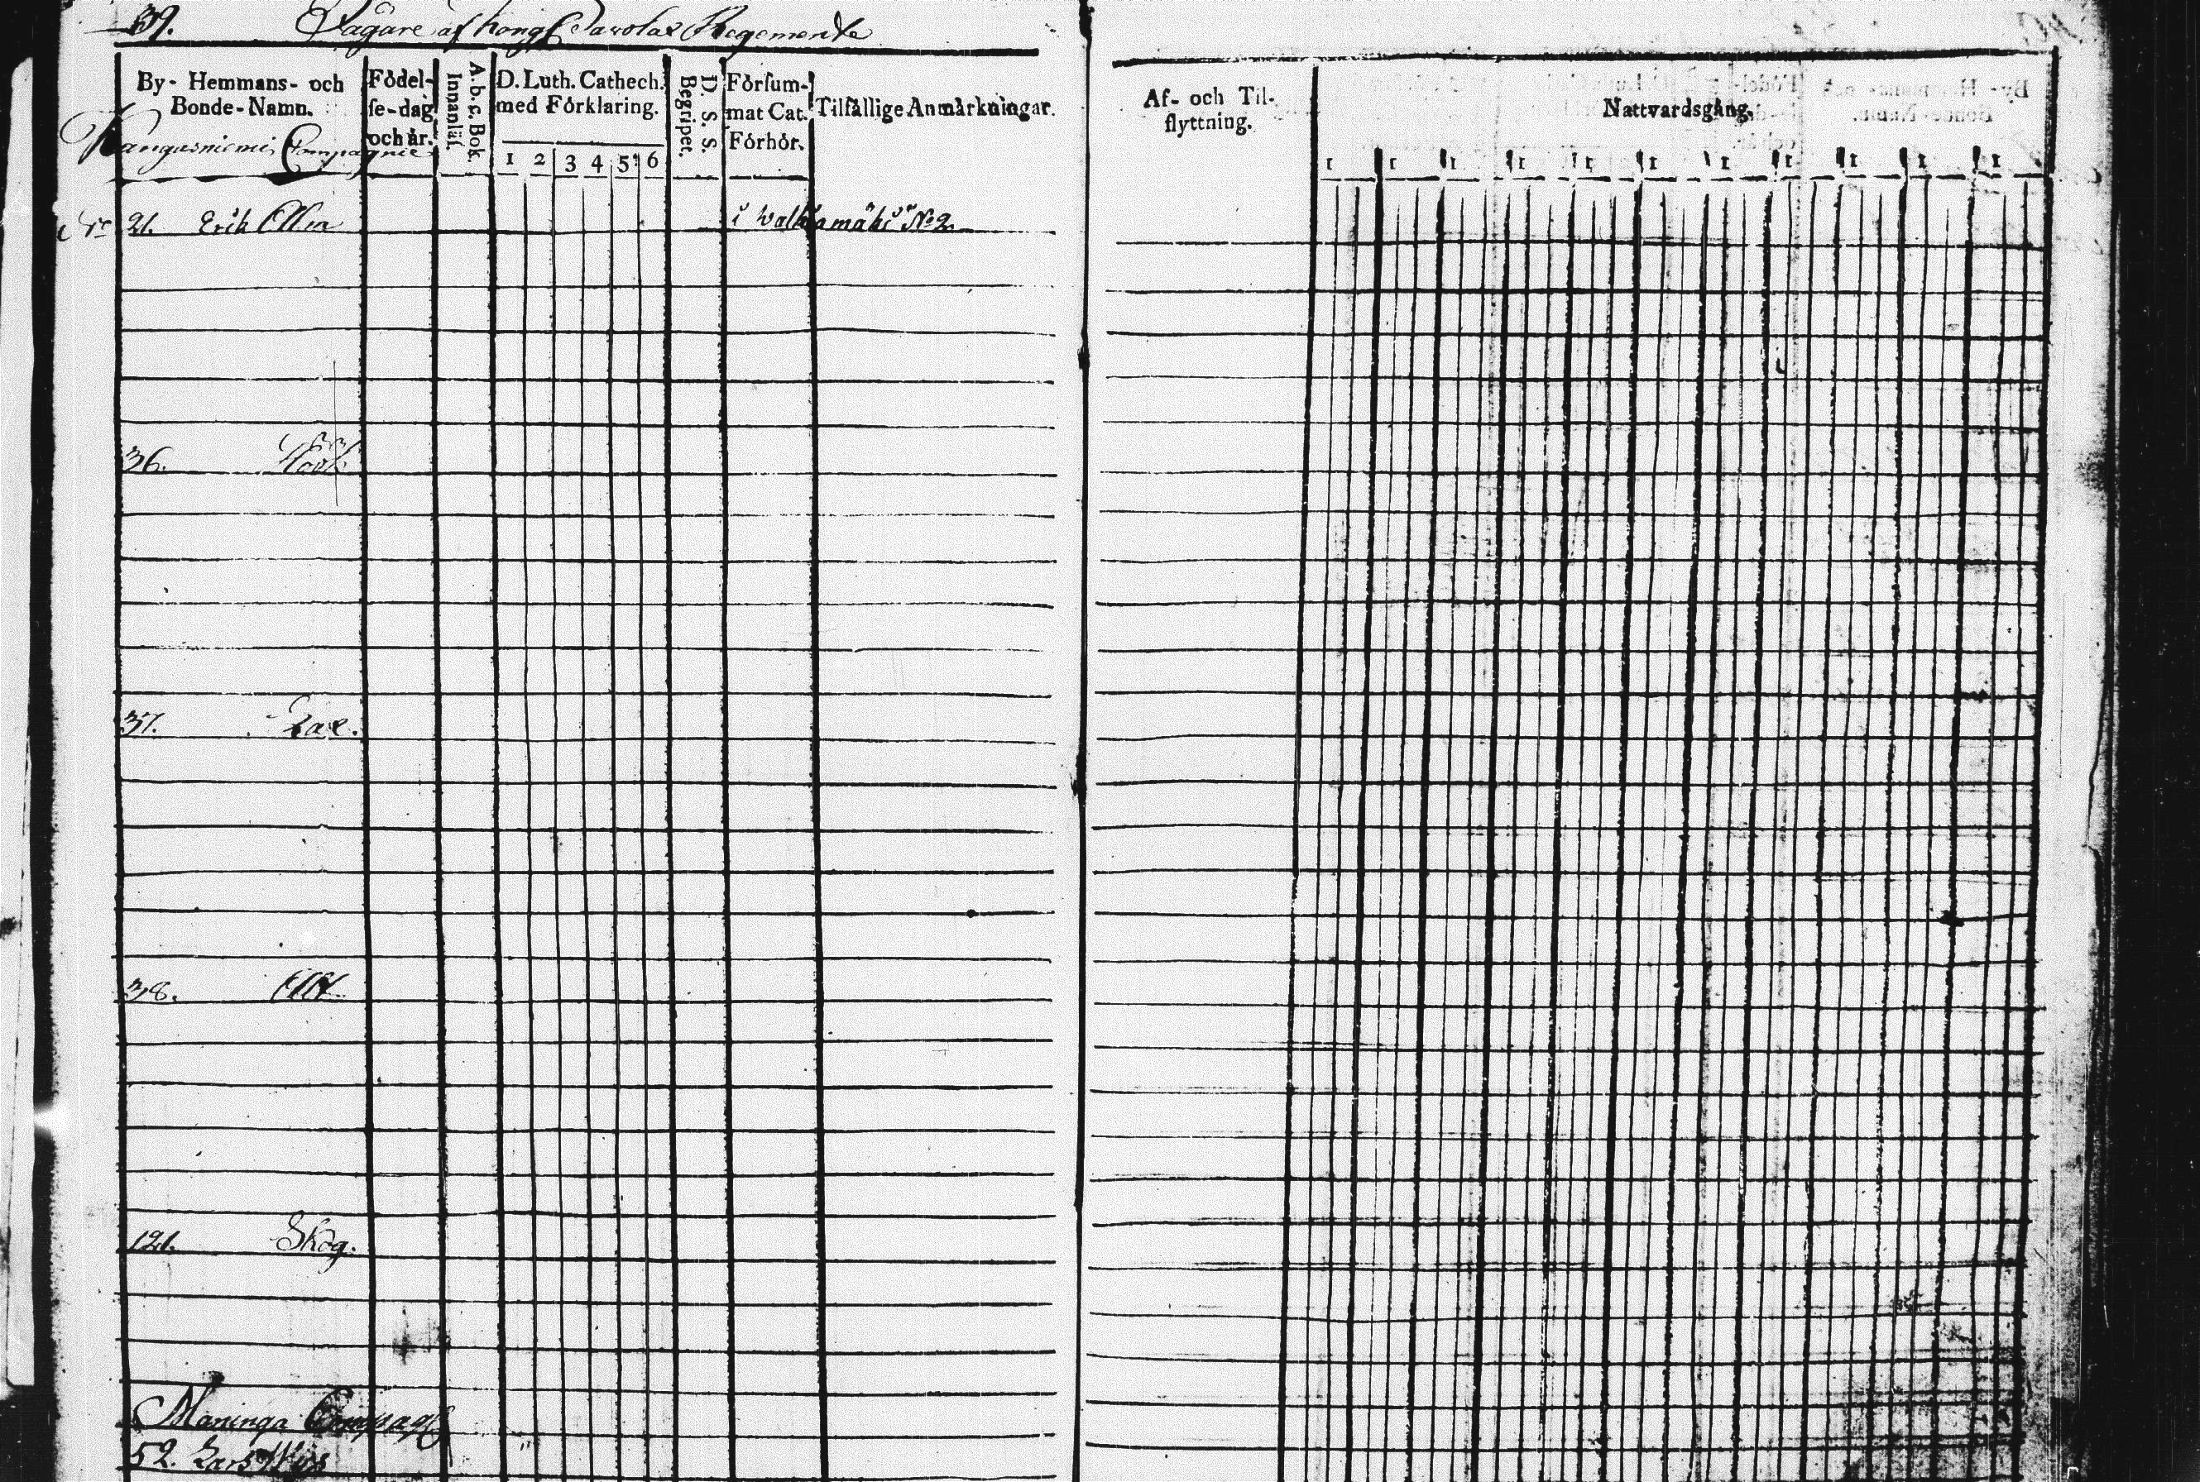 39. Jägare af Kongl. Savolax Regemente
By- Hemmans- och Bonde-Namn.
Födel-se-dag och år.
A.b.c. Bok. Innanläs.
D. Luth. Cathech. med Förklaring.
1 2 3 4 5 6
D. S. S. Begripet.
Försum-mat Cat. Förhör.
Tilfällige Anmärkningar.
Af- och Til-flyttning.
Nattvardsgång.
1 1 1 1 1 1 1 1 1 1 1
Kangasniemi Compagnie
N:o 21. Erik Olin i Walkiamäki N:o 2.
36.
37. Lax.
38.
121. Skog.
Maninga Compag:
52. Lars